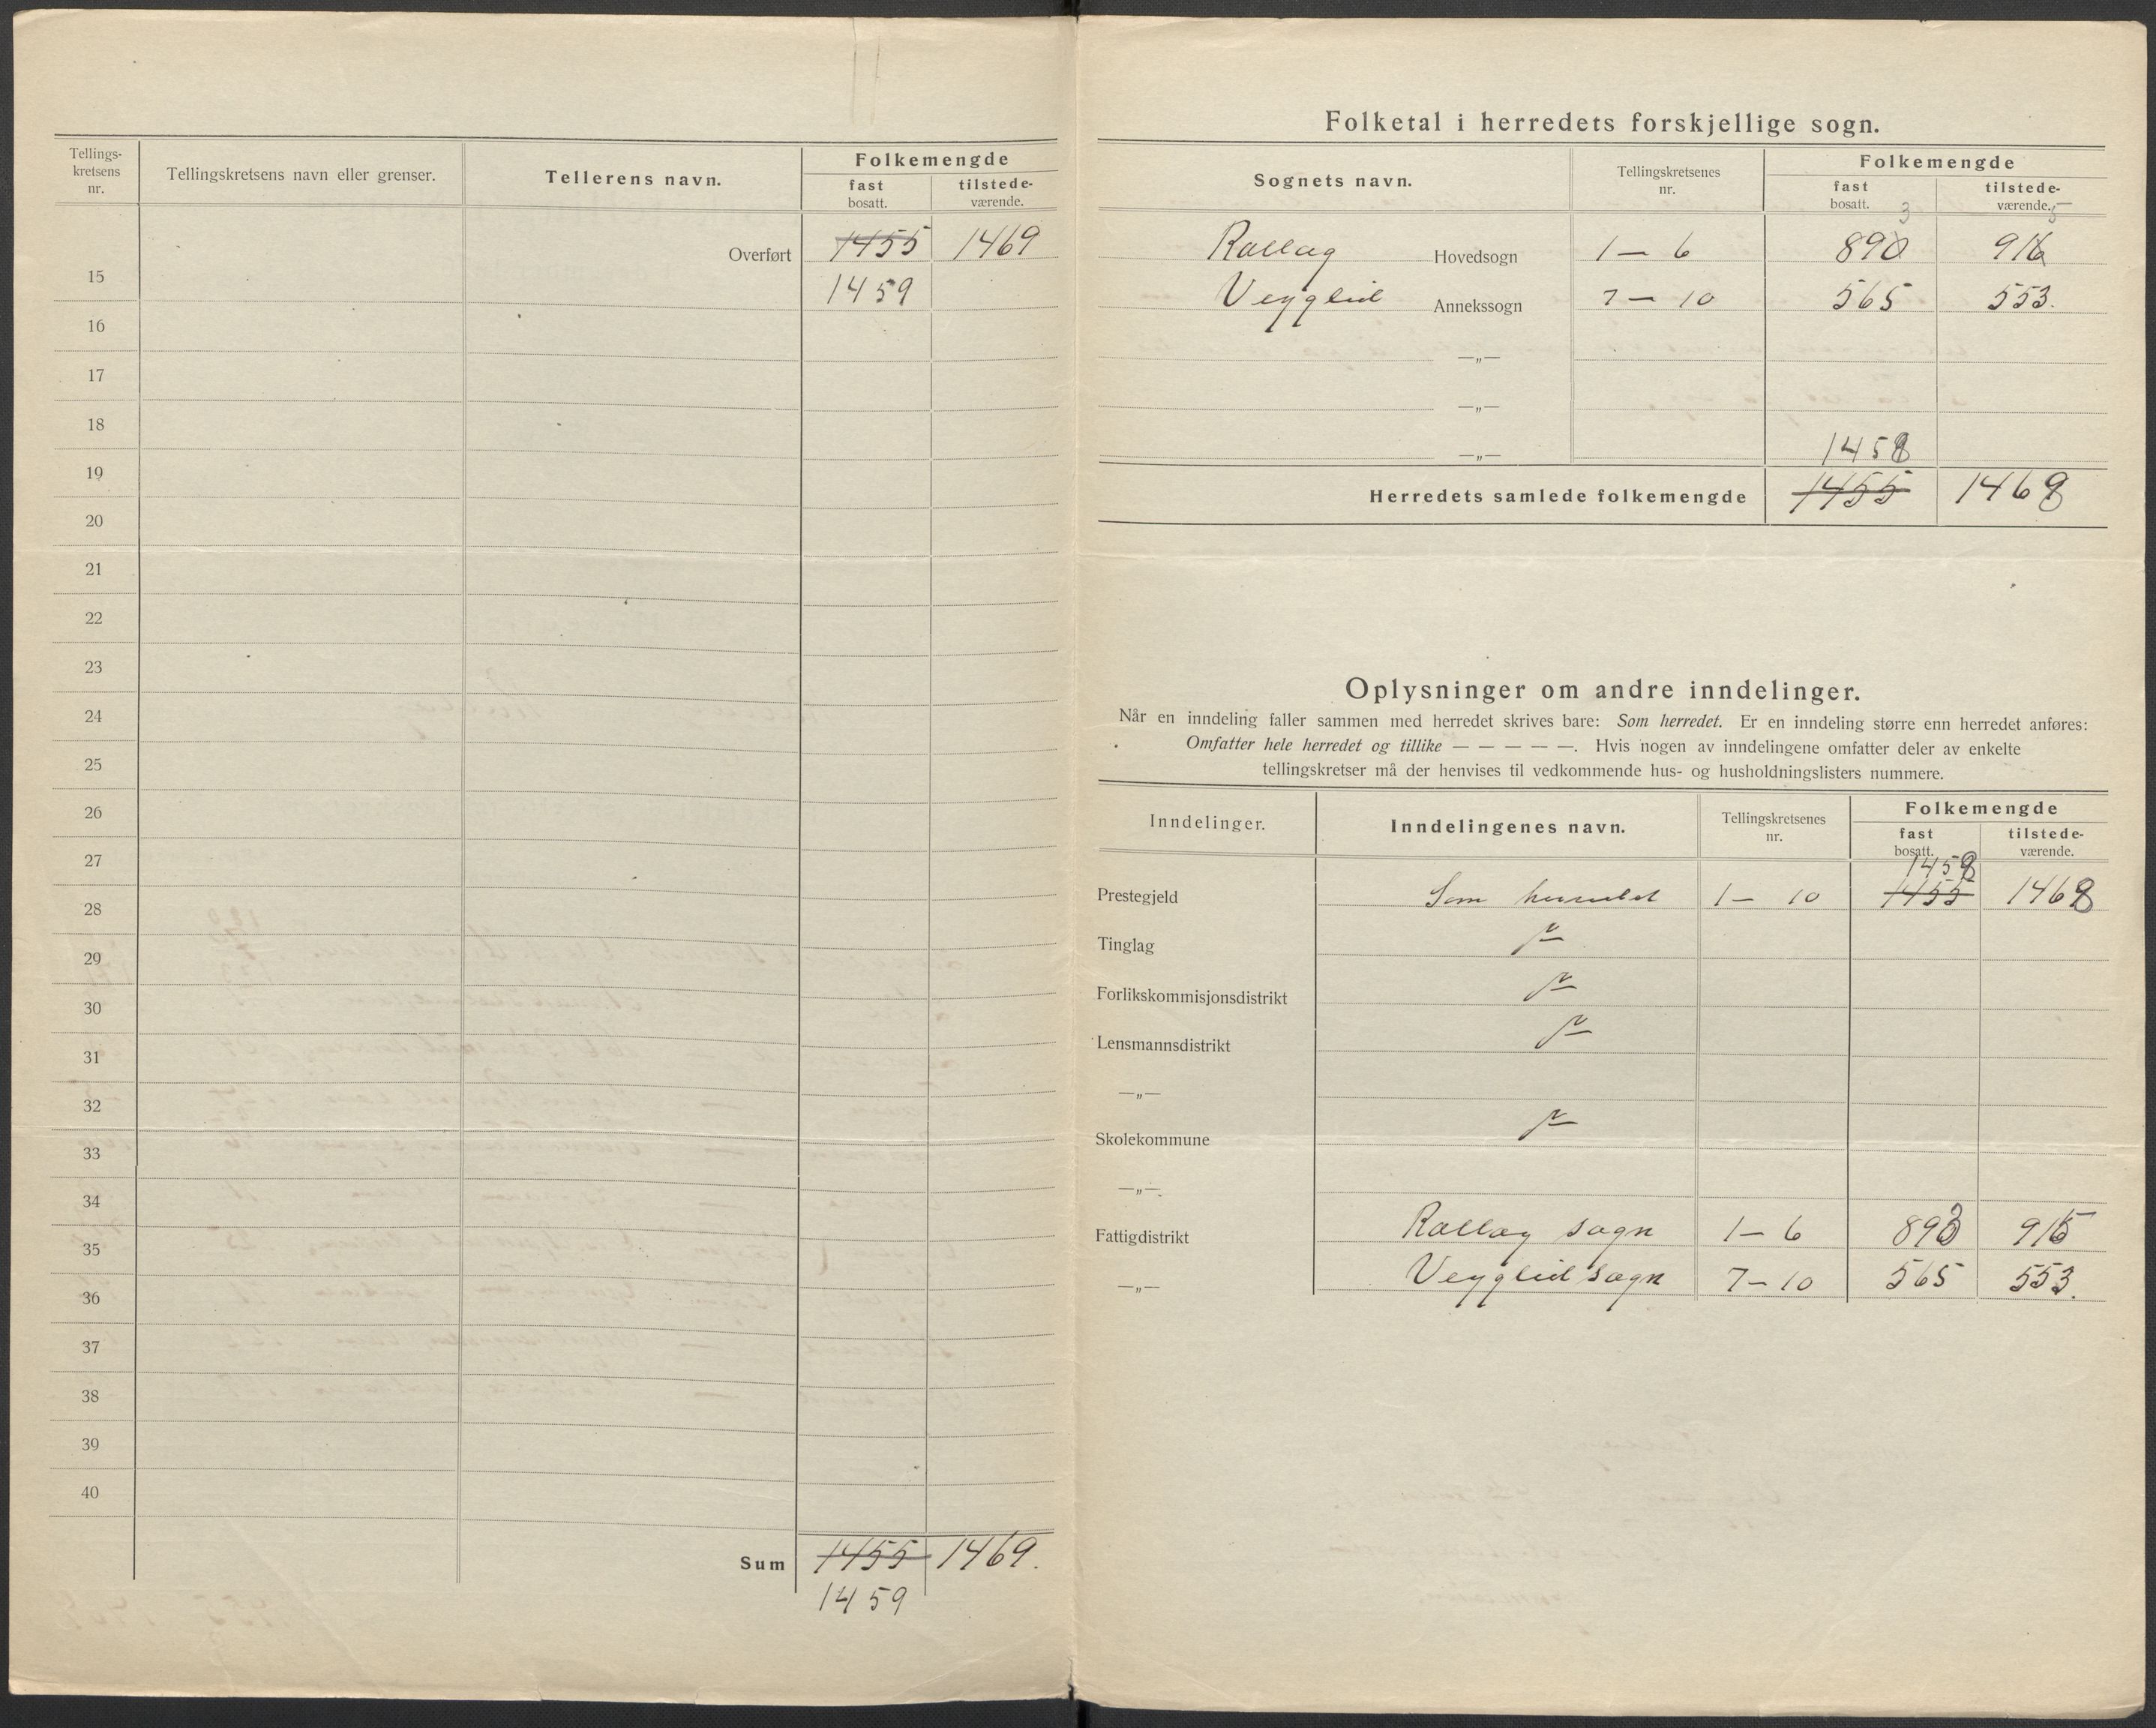 Tellings-
kretsens
nr.
Tellingskretsens navn eller grenser.
Tellerens navn.
Folkemengde
fast
bosatt.
tilstede-
værende.
Overført 1455 1469
15 1459
16
17
18
19
20
21
22
23
24
25
26
27
28
29
30
31
32
33
34
35
36
37
38
39
40
Sum 1455 1469.
1459
Folketal i herredets forskjellige sogn.
Sognets navn.
Tellingskretsenes
nr.
Folkemengde
fast
bosatt.
tilstede-
værende.
3 5
Rollag Hovedsogn 1 — 6 890 916
Veggli͏d Annekssogn 7 — 10 565 553.
—„—
—„—
—„— 1458
Herredets samlede folkemengde 1455 1468
Oplysninger om andre inndelinger.
Når en inndeling faller sammen med herredet skrives bare: Som herredet. Er en inndeling større enn herredet anføres:
Omfatter hele herredet og tillike — — — — —. Hvis nogen av inndelingene omfatter deler av enkelte
tellingskretser må der henvises til vedkommende hus- og husholdningslisters nummere.
Inndelinger.
Inndelingenes navn.
Tellingskretsenes
nr.
Folkemengde
fast
bosatt.
tilstede-
værende.
1458
Prestegjeld Som herredet 1 — 10 1455 1468
Tinglag
Forlikskommisjonsdistrikt
Lensmannsdistrikt
—„—
Skolekommune
—„—
Fattigdistrikt Rollag sogn 1 — 6 893 915
—„— Vegglid sogn 7 — 10 565 553.